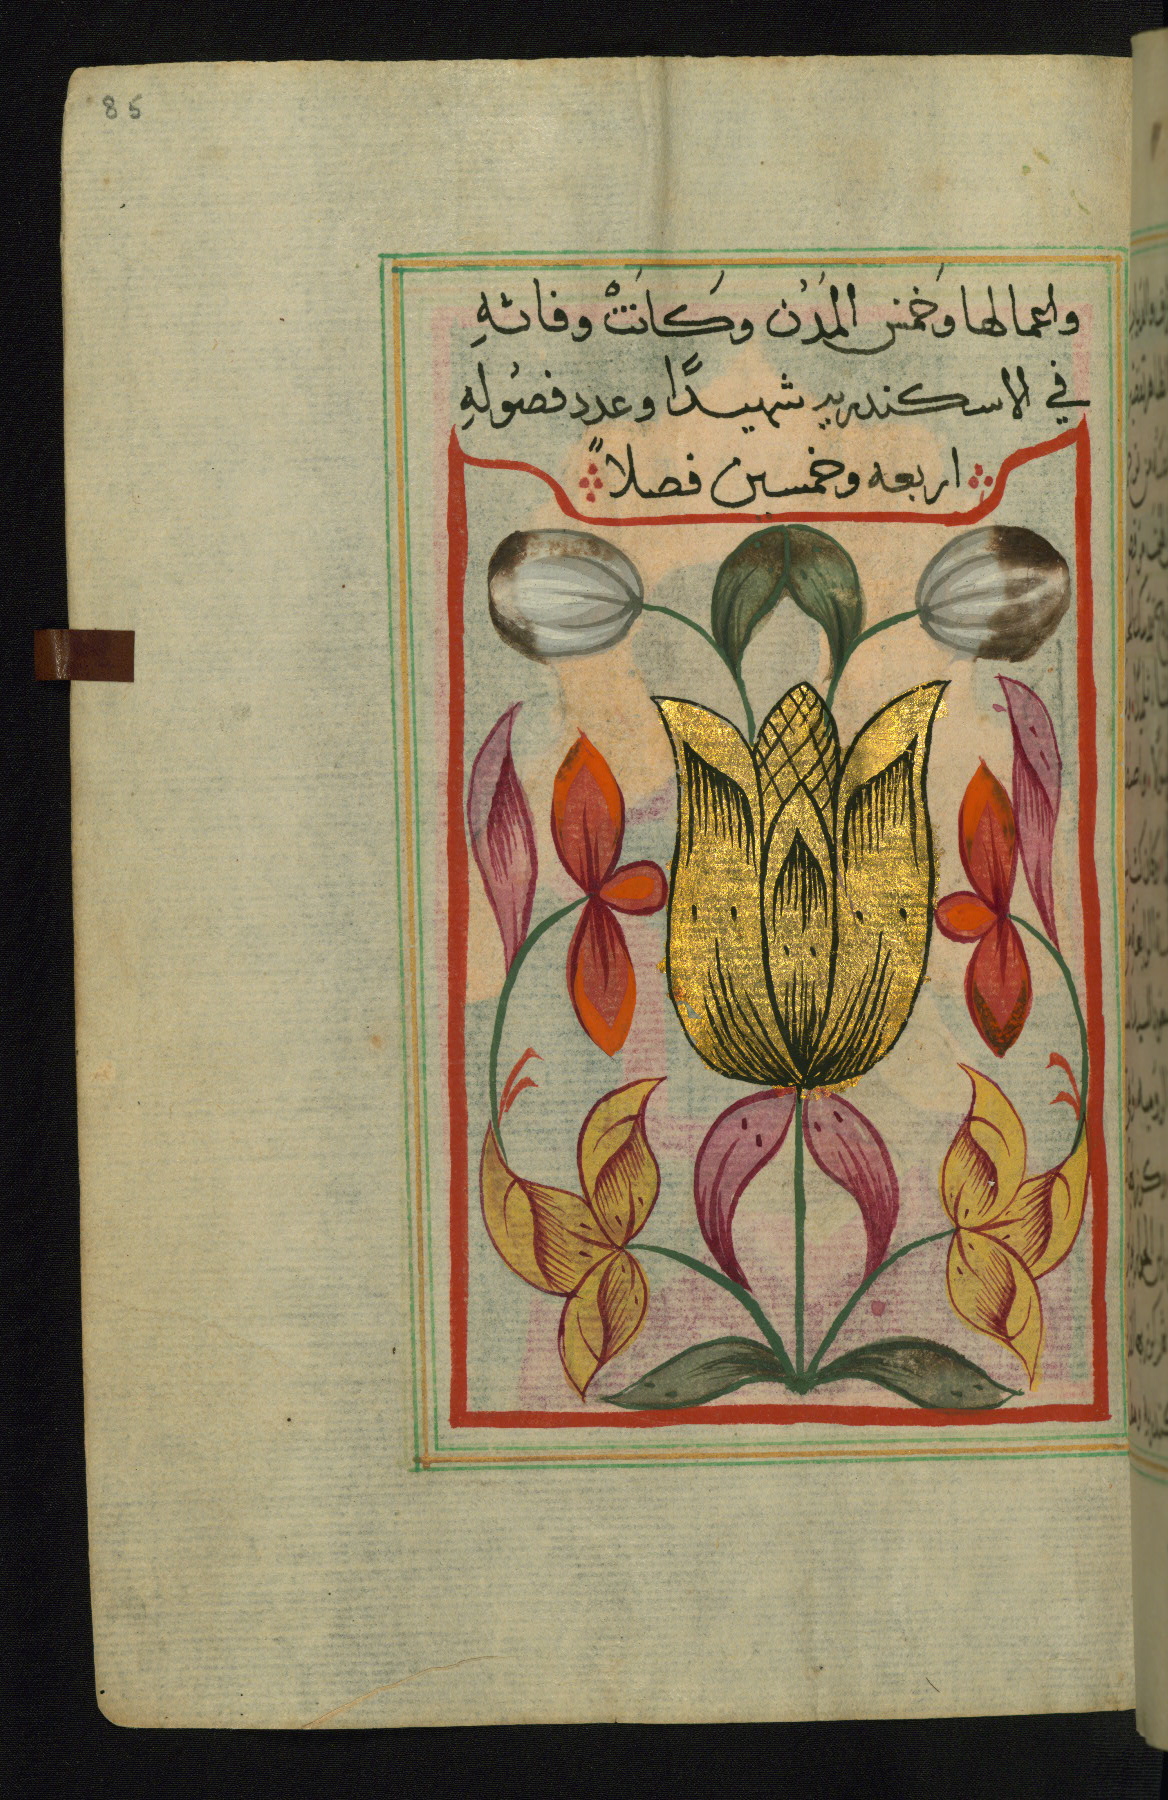 85
واعمالها وَخمَس المَدُن وكَانَتْ وفاتهِ
في الاسكندريه شهيدًا وعدد فصُولهِ
اربعه وخمسين فصلاً